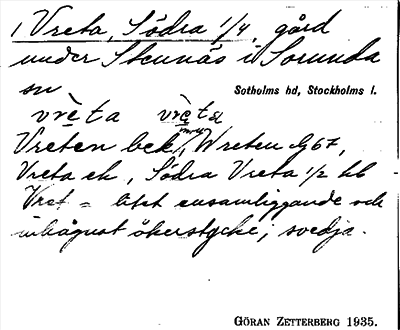 1 Vreta, Södra 1/4, gård
under Stennäs i Sorunda
sn
Sotholms hd, Stockholms l.
vrèta vrèta
Vreten bek. Wreten Jb 67,
Vreta ek, Södra Vreta 1/2 hb
Vret = litet ensamliggande och
inhägnat åkerstycke; svedja.
GÖRAN ZETTERBERG 1935.